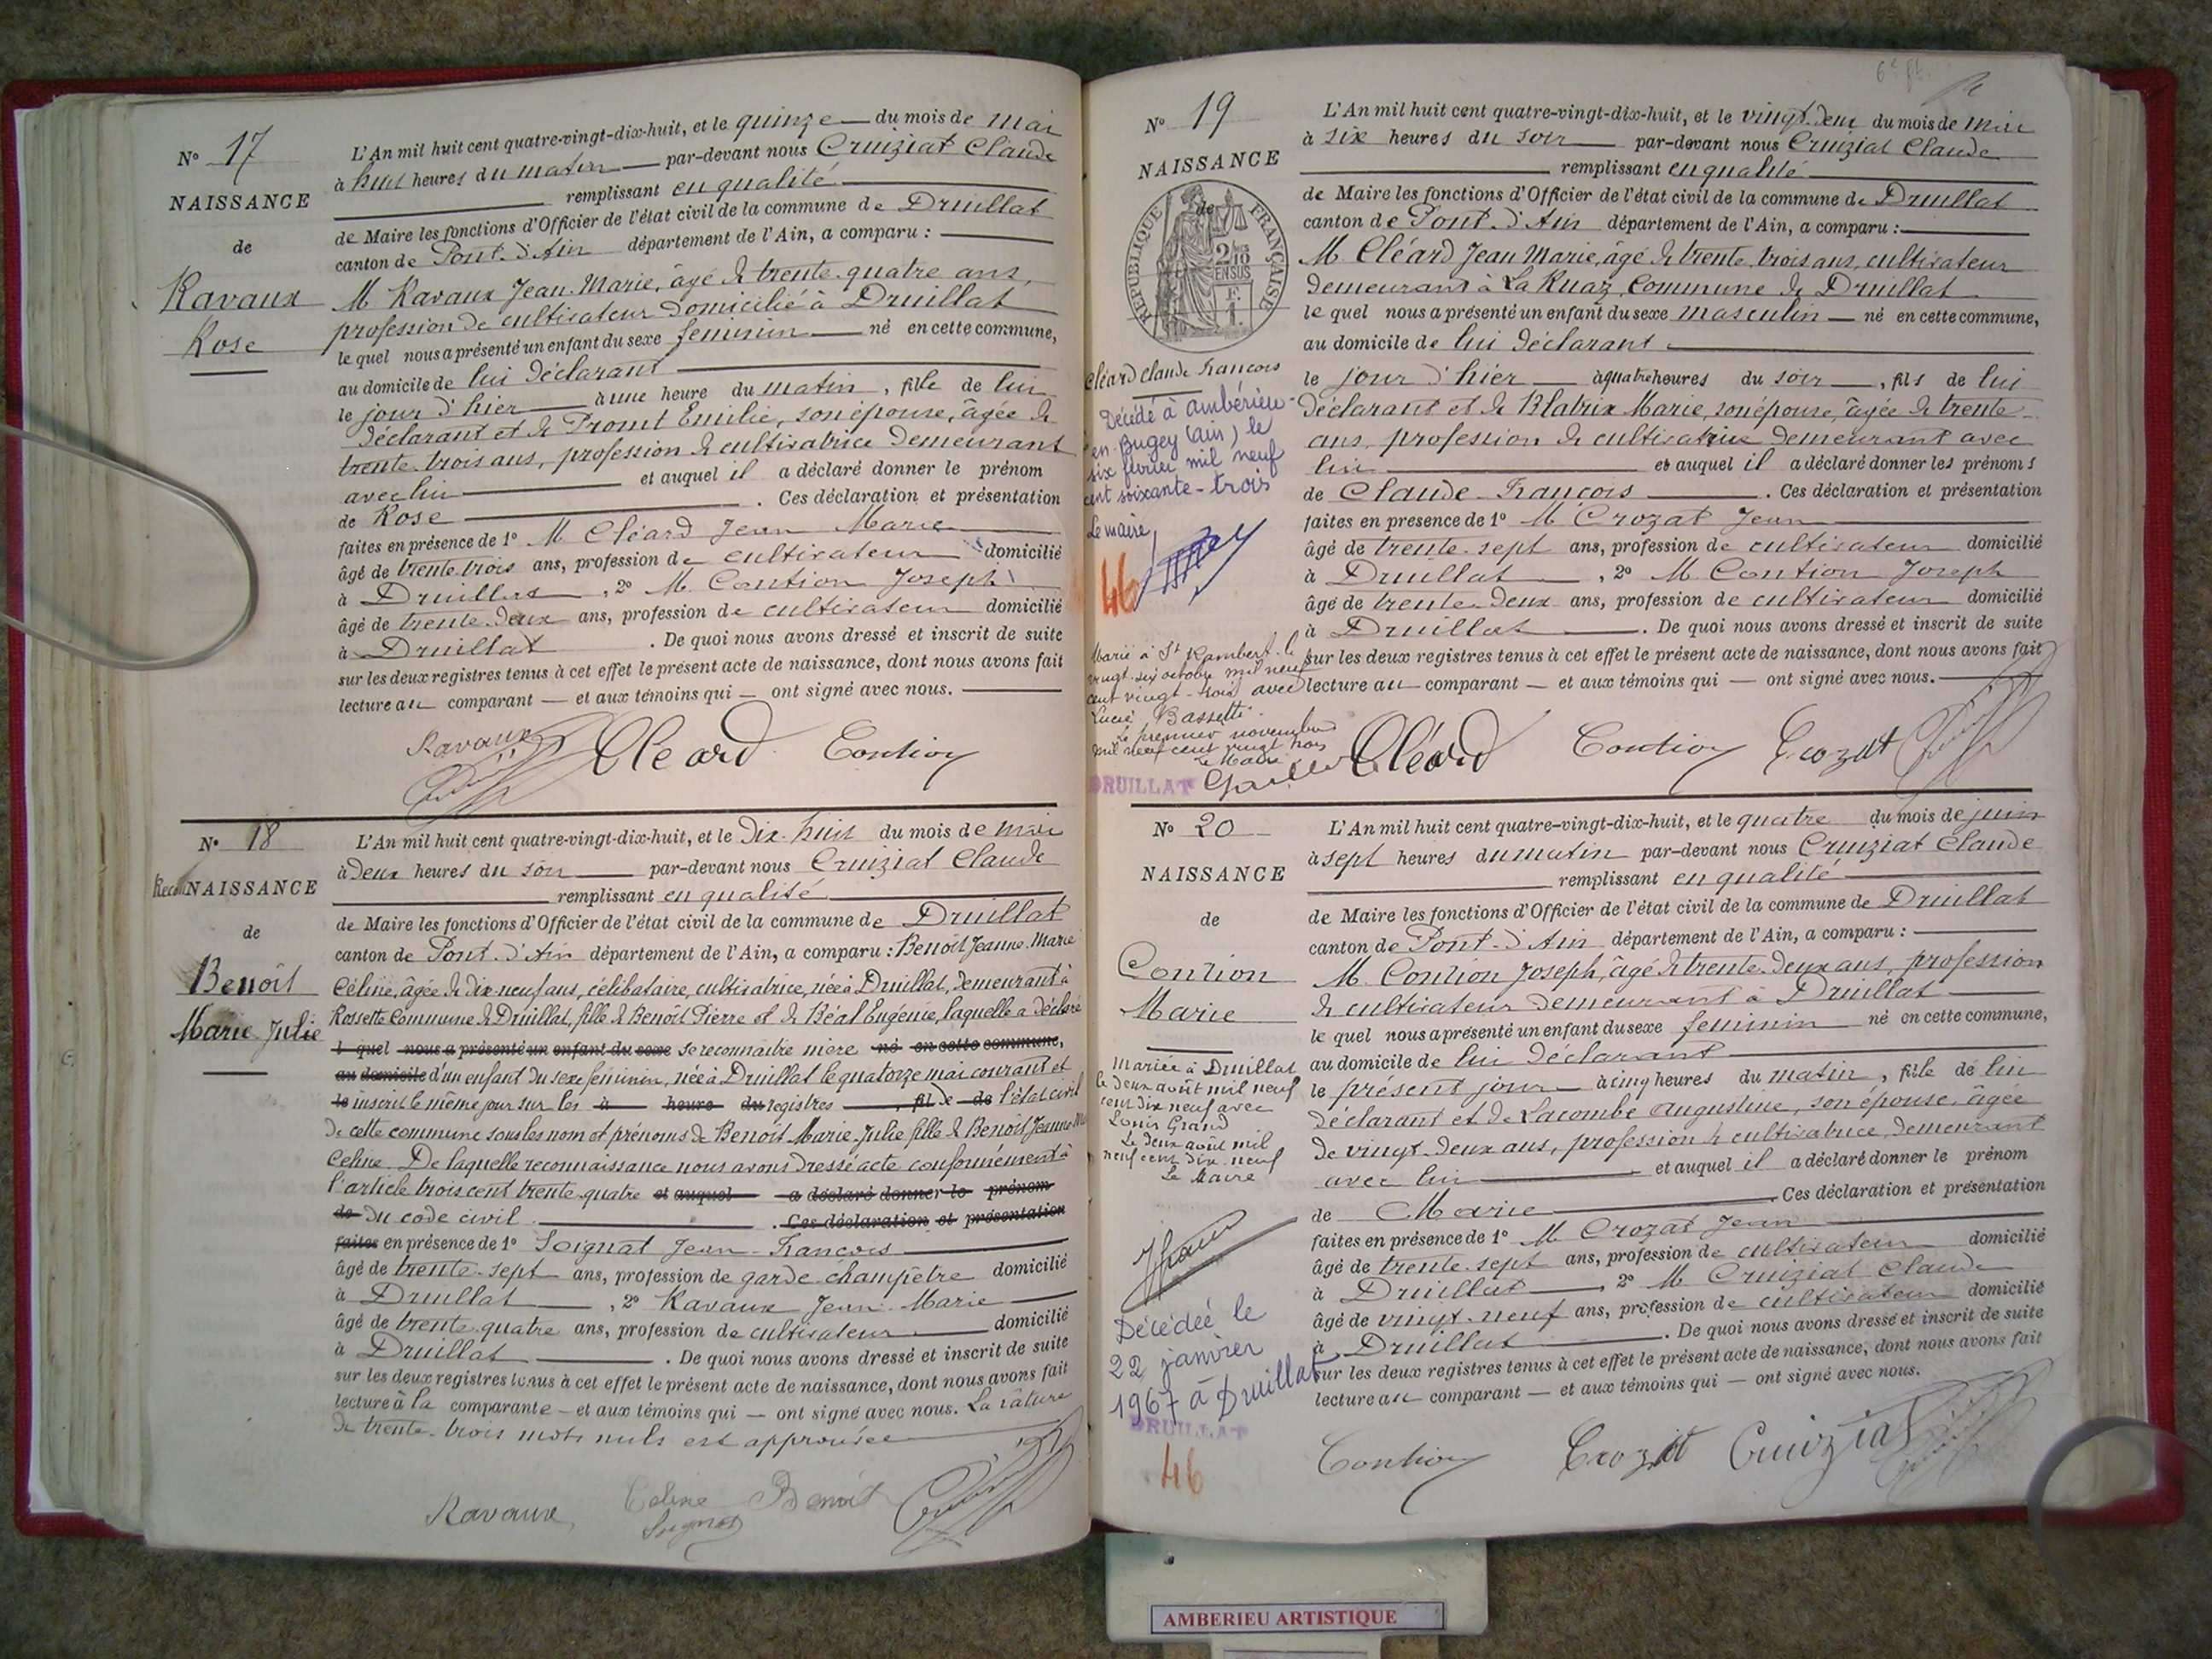 N° 17
NAISSANCE
de
Ravaux
Rose
L'An mil huit cent quatre-vingt-dix-huit, et le quinze du mois de mai
à huit heures du matin par-devant nous Cruiziat Claude
remplissant en qualité
de Maire les fonctions d'Officier de l'état civil de la commune de Druillat
canton de Pont-d'Ain département de l'Ain, a comparu :
M Ravaux Jean-Marie, âgé de trente-quatre ans,
profession de cultivateur domicilié à Druillat
le quel nous a présenté un enfant du sexe feminin né en cette commune,
au domicile de lui déclarant
le jour d'hier à une heure du matin, fille de lui
déclarant et de Promt Emilie, son épouse, âgée de
trente-trois ans, profession de cultivatrice demeurant
avec lui et auquel il a déclaré donner le prénom
de Rose . Ces déclaration et présentation
faites en présence de 1° M Cléard Jean Marie
âgé de trente-trois ans, profession de cultivateur domicilié
à Druillat , 2° M. Contion Joseph
âgé de trente-deux ans, profession de cultivateur domicilié
à Druillat . De quoi nous avons dressé et inscrit de suite
sur les deux registres tenus à cet effet le présent acte de naissance, dont nous avons fait
lecture au comparant — et aux témoins qui — ont signé avec nous.
Ravaux Cléard Contion
N° 18
Recon NAISSANCE
de
Benoît
Marie-Julie
L'An mil huit cent quatre-vingt-dix-huit, et le dix-huit du mois de mai
à deux heures du soir par-devant nous Cruiziat Claude
remplissant en qualité
de Maire les fonctions d'Officier de l'état civil de la commune de Druillat
canton de Pont-d'Ain département de l'Ain, a comparu : Benoît Jeanne-Marie
Céline, âgée de dix-neuf ans, célibataire, cultivatrice, née à Druillat, demeurant à
Rossette Commune de Druillat, fille de Benoît Pierre et de Béal Eugénie, laquelle a déclaré
l quel nous a présenté un enfant du sexe se reconnaître mère né en cette commune,
au domicile d'un enfant du sexe féminin, née à Druillat le quatorze mai courant et
le inscrit le même jour sur les à heure du registres , fil de de l'état civil
de cette commune sous les nom et prénoms de Benoît Marie-Julie fille de Benoît Jeanne M
Céline. De laquelle reconnaissance nous avons dressé acte conformément à
l'article trois cent trente-quatre et auquel a déclaré donner le prénom
de du code civil . Ces déclaration et présentation
faites en présence de 1° Soignat Jean-François
âgé de trente-sept ans, profession de garde-champêtre domicilié
à Druillat , 2° Ravaux Jean-Marie
âgé de trente-quatre ans, profession de cultivateur domicilié
à Druillat . De quoi nous avons dressé et inscrit de suite
sur les deux registres tenus à cet effet le présent acte de naissance, dont nous avons fait
lecture à la comparante — et aux témoins qui — ont signé avec nous. La rature
de trente-trois mots nuls est approuvée
Ravaux Celine Benoit
Soignat
N° 19
NAISSANCE
de
RÉPUBLIQUE FRANÇAISE
2/10 EN SUS
Cléard Claude François
Décédé à Ambérieu-
en-Bugey (ain) le
six février mil neuf
cent soixante-trois
Le maire,
46
Marié à St Rambert le
vingt-six octobre mil neuf
cent vingt-trois avec
Lucie Bassetti.
Le premier novembre
mil neuf cent vingt trois
Le Maire
DRUILLAT
L'An mil huit cent quatre-vingt-dix-huit, et le vingt-deux du mois de mai
à six heures du soir par-devant nous Cruiziat Claude
remplissant en qualité
de Maire les fonctions d'Officier de l'état civil de la commune de Druillat
canton de Pont-d'Ain département de l'Ain, a comparu :
M Cléard Jean Marie, âgé de trente-trois ans, cultivateur
demeurant à La Ruaz, Commune de Druillat
le quel nous a présenté un enfant du sexe masculin né en cette commune,
au domicile de lui déclarant
le jour d'hier à quatre heures du soir , fils de lui
déclarant et de Blatrix Marie, son épouse, âgée de trente
ans, profession de cultivatrice demeurant avec
lui et auquel il a déclaré donner les prénoms
de Claude-François . Ces déclaration et présentation
faites en présence de 1° M Crozat Jean
âgé de trente-sept ans, profession de cultivateur domicilié
à Druillat , 2° M Contion Joseph
âgé de trente-deux ans, profession de cultivateur domicilié
à Druillat . De quoi nous avons dressé et inscrit de suite
sur les deux registres tenus à cet effet le présent acte de naissance, dont nous avons fait
lecture au comparant — et aux témoins qui — ont signé avec nous.
Cléard Contion Crozat
N° 20
NAISSANCE
de
Contion
Marie
Mariée à Druillat
le deux août mil neuf
cent dix neuf avec
Louis Grand
Le deux août mil
neuf cent dix-neuf
Le Maire
Décédée le
22 janvier
1967 à Druillat
DRUILLAT
46
L'An mil huit cent quatre-vingt-dix-huit, et le quatre du mois de juin
à sept heures du matin par-devant nous Cruiziat Claude
remplissant en qualité
de Maire les fonctions d'Officier de l'état civil de la commune de Druillat
canton de Pont-d'Ain département de l'Ain, a comparu :
M. Contion Joseph, âgé de trente-deux ans, profession
de cultivateur demeurant à Druillat
le quel nous a présenté un enfant du sexe feminin né en cette commune,
au domicile de lui déclarant
le présent jour à cinq heures du matin , fille de lui
déclarant et de Lacombe Augustine, son épouse, âgée
de vingt-deux ans, profession de cultivatrice demeurant
avec lui et auquel il a déclaré donner le prénom
de Marie . Ces déclaration et présentation
faites en présence de 1° M Crozat Jean
âgé de trente-sept ans, profession de cultivateur domicilié
à Druillat , 2° M Cruiziat Claude
âgé de vingt-neuf ans, profession de cultivateur domicilié
à Druillat . De quoi nous avons dressé et inscrit de suite
sur les deux registres tenus à cet effet le présent acte de naissance, dont nous avons fait
lecture au comparant — et aux témoins qui — ont signé avec nous.
Contion Crozat Cruiziat
AMBERIEU ARTISTIQUE